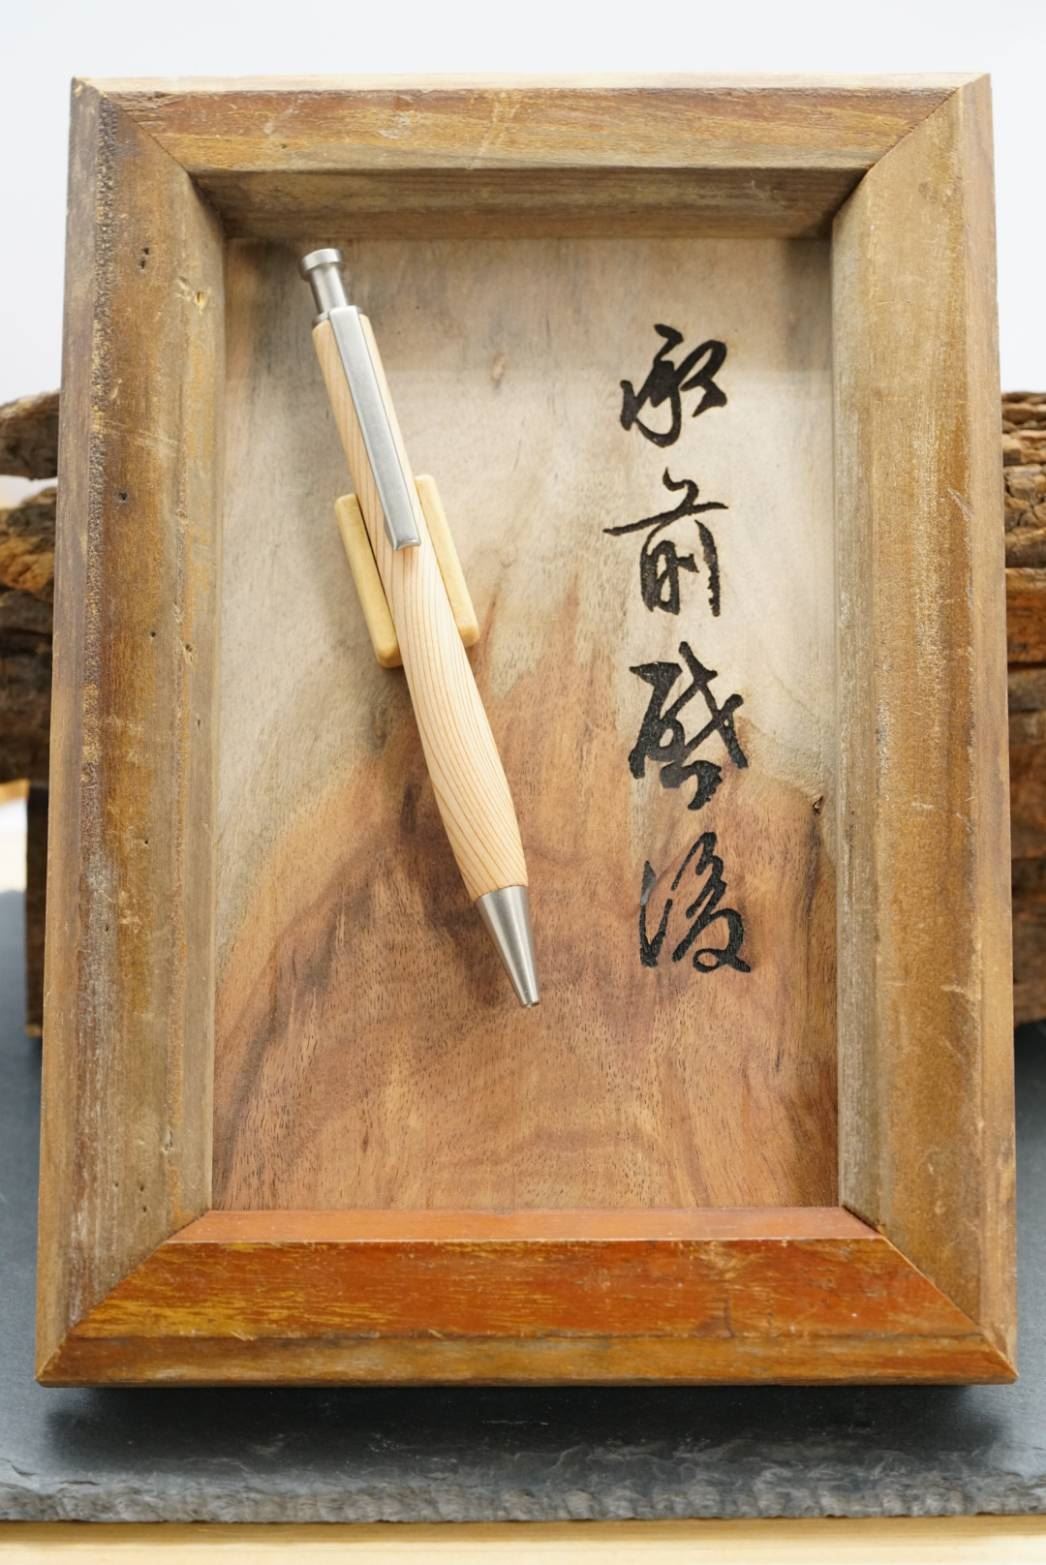 承前啟後